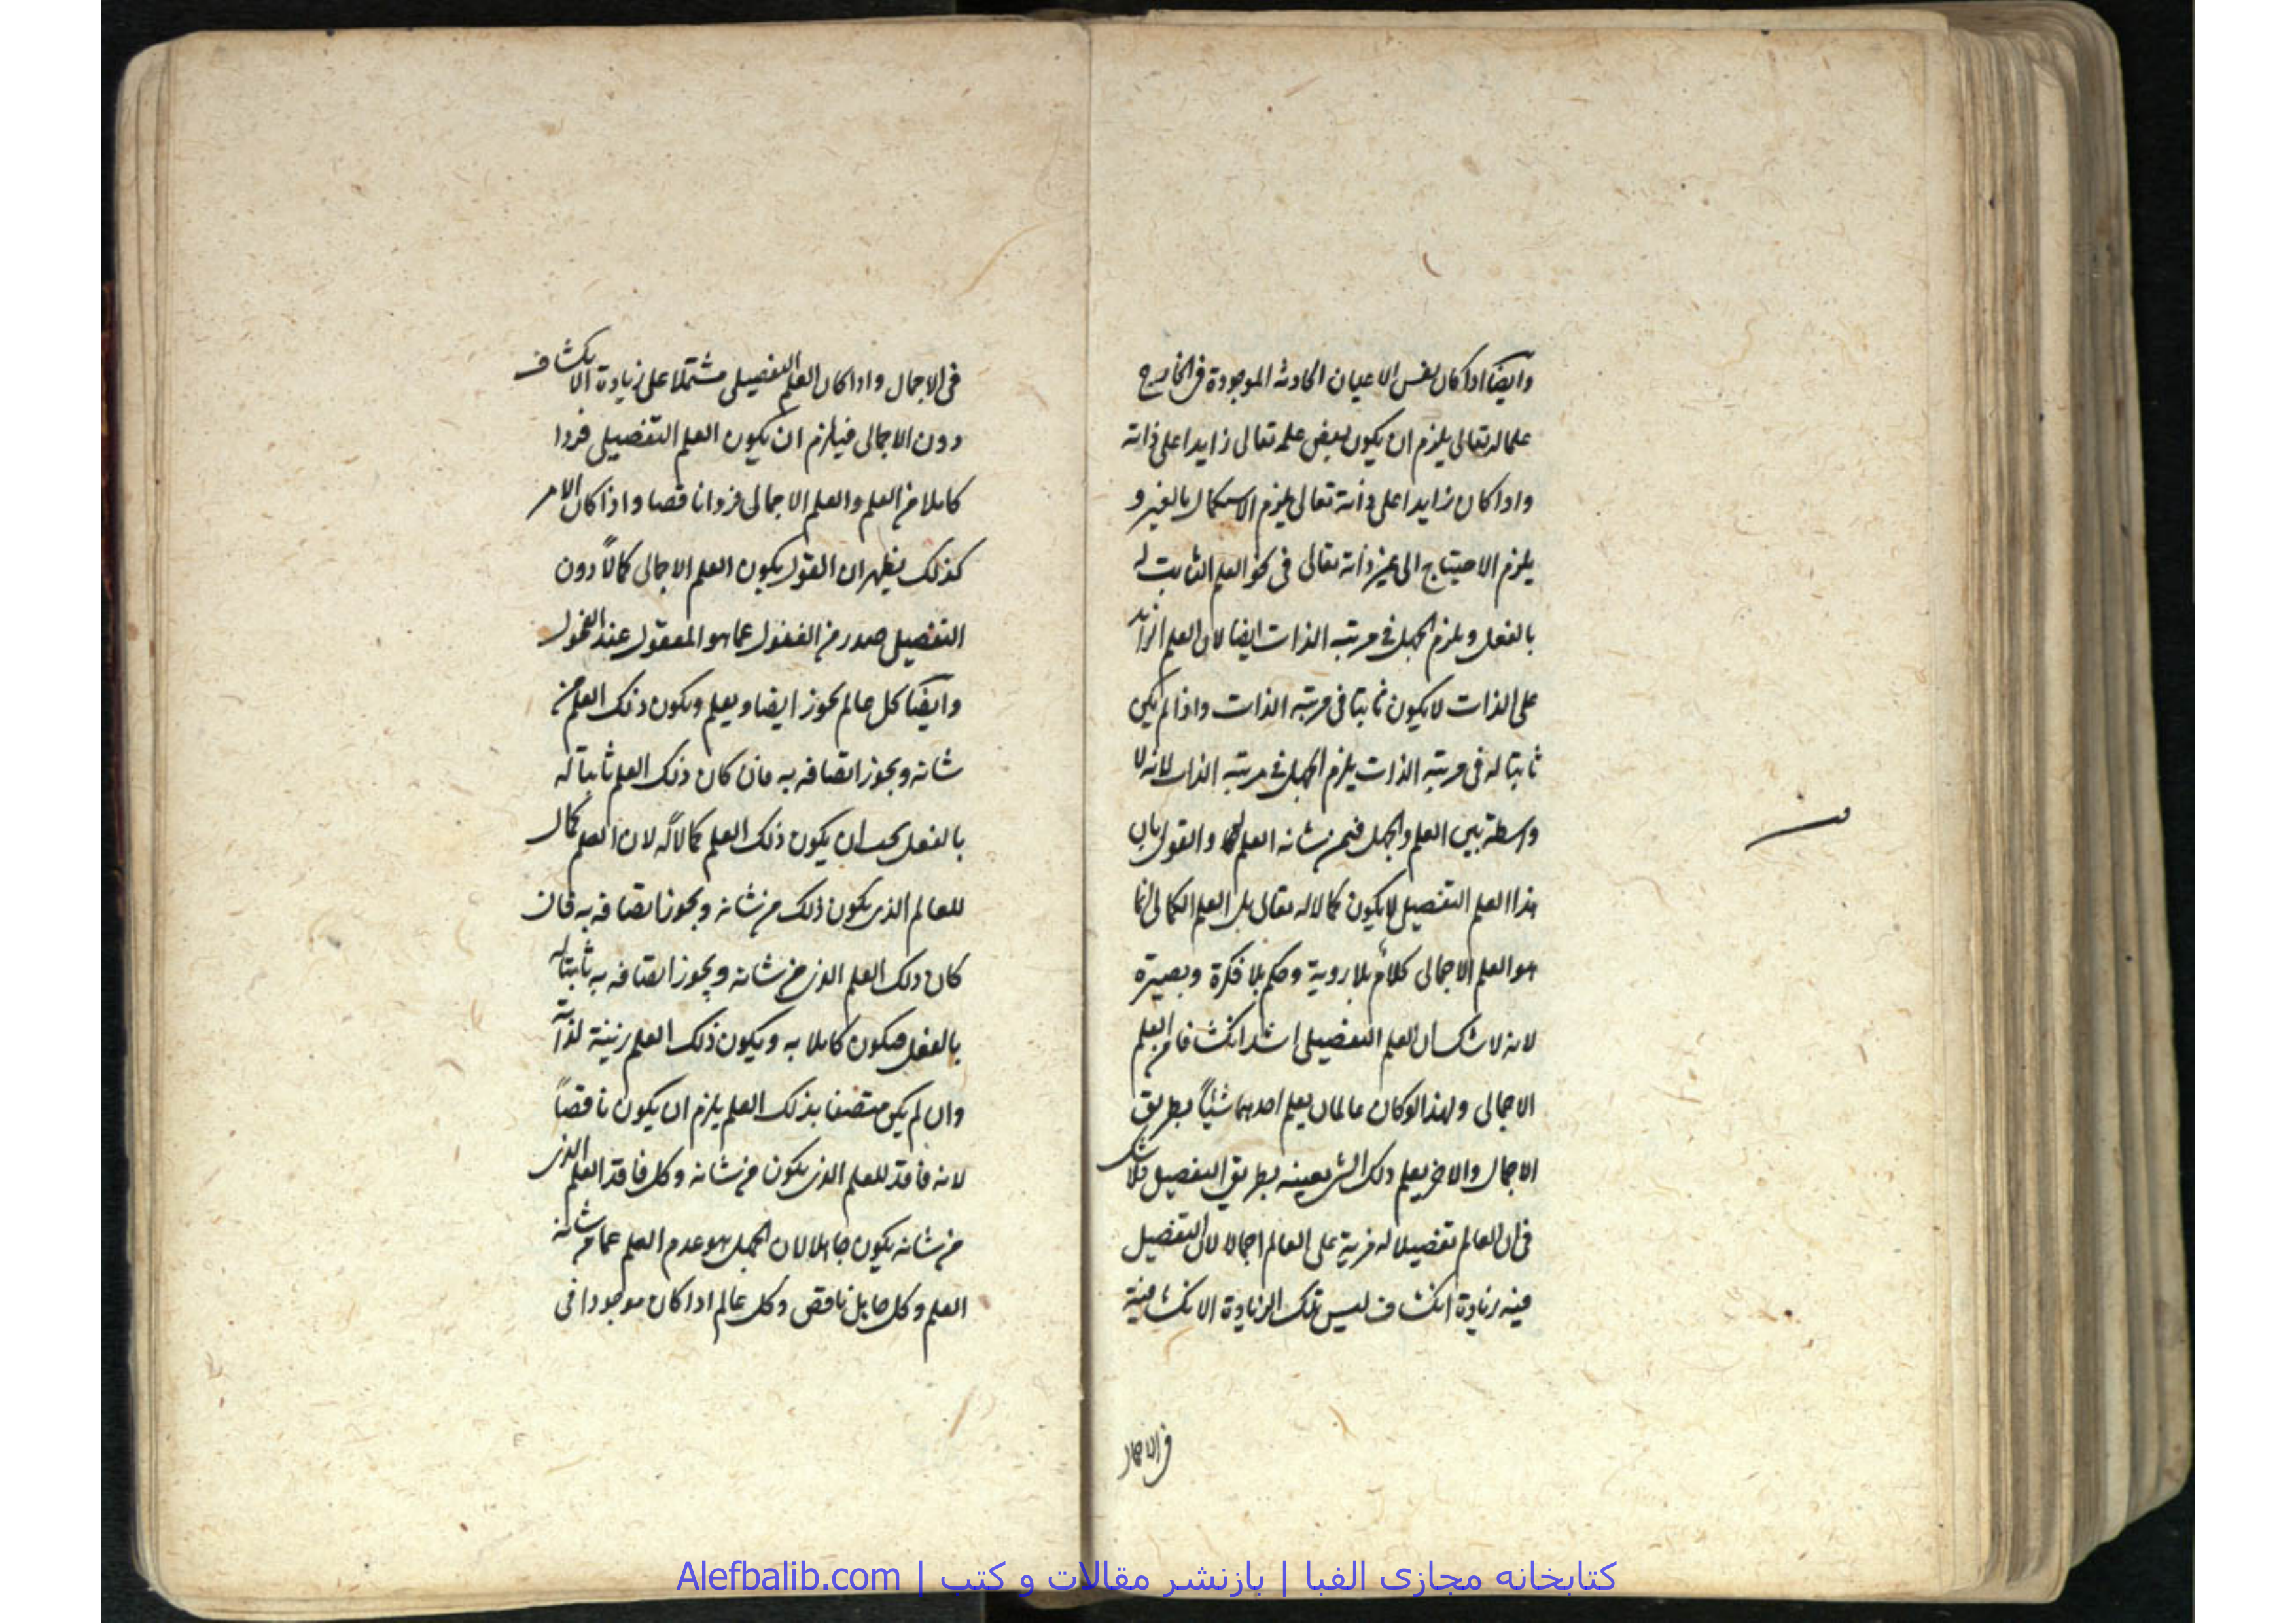 وايضًا اذا كان نفس الاعيان الحادثه الموجودة فى الخارج
علما له تعالى يلزم ان يكون بعض علمه تعالى زايدا على ذاته
واذا كان زايدا على ذاته تعالى يلزم الاستكمال بالغير و
يلزم الاحتياج الى غير ذاته تعالى فى نحو العلم الثابت له
بالفعل ويلزم الجهل فى مرتبه الذات ايضا لان العلم الزائد
على الذات لا يكون ثابتا فى مرتبه الذات واذا لم يكن
ثابتا له فى مرتبه الذات يلزم الجهل فى مرتبه الذات لانه لا
واسطة بين العلم والجهل فيمن شانه العلم والقول بان
هذا العلم التفصيلى لا يكون كمالا له تعالى بل العلم الكمالى انما
هو العلم الاجمالى كلام بلا روية وحكم بلا فكرة وبصيرة
لانه لا شك ان العلم التفصيلى اشد انكشافا من العلم
الاجمالى ولهذا لو كان عالمان يعلم احدهما شيئاً بطريق
الاجمال والاخر يعلم ذلك الشى بعينه بطريق التفصيل فلا شك
فى ان العالم تفصيلا له مزية على العالم اجمالا لان التفصيل
فيه زيادة انكشاف ليس تلك الزيادة الانكشافية
فى الاجمال
فى الاجمال واذا كان العلم التفصيلى مشتملا على زيادة الانكشاف
دون الاجمالى فيلزم ان يكون العلم التفصيلى فردا
كاملا من العلم والعلم الاجمالى فردا ناقصا واذا كان الامر
كذلك يظهر ان القول بكون العلم الاجمالى كمالاً دون
التفصيل صدر من الغفول عما هو المعقول عند الفحول
وايضًا كل عالم يجوز ايضا و يعلم ويكون ذلك العلم من
شانه ويجوز اتصافه به فان كان ذلك العلم ثابتا له
بالفعل يجب ان يكون ذلك العلم كمالاً له لان العلم كمال
للعالم الذى يكون ذلك من شانه ويجوز اتصافه به فان
كان ذلك العلم الذى من شانه ويجوز اتصافه به ثابتا له
بالفعل فيكون كاملا به ويكون ذلك العلم زينة لذاته
وان لم يكن متصفا بذلك العلم يلزم ان يكون ناقصاً
لانه فاقد للعلم الذى يكون من شانه وكل فاقد العلم الذى
من شانه يكون جاهلا لان الجهل هو عدم العلم عما من شانه
العلم وكل جاهل ناقص وكل عالم اذا كان موجودا فى
كتابخانه مجازی الفبا | بازنشر مقالات و کتب | Alefbalib.com